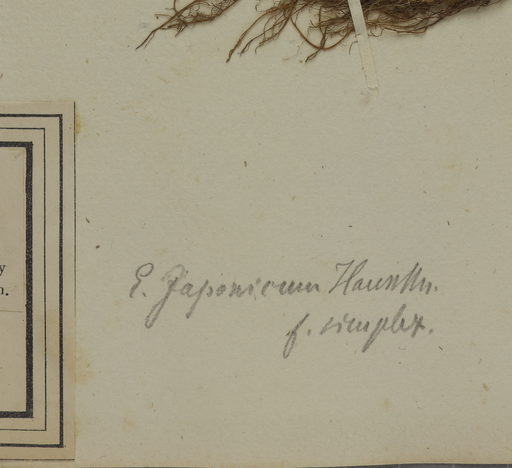 y
n.
E. Japonicum Hausskn.
f. simplex.